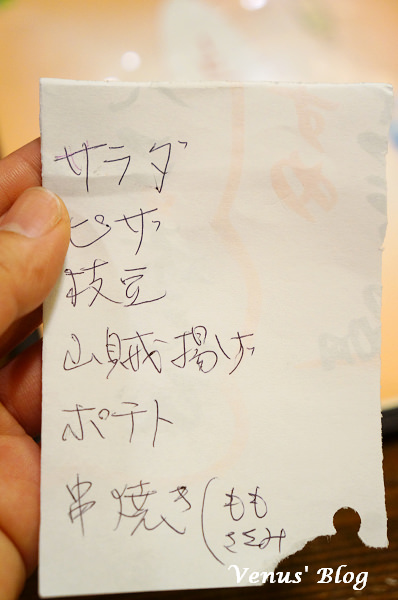 サラダ
ピザ
枝豆
山賊揚げ
ポテト
串焼き(もも
ささみ
Venus' Blog